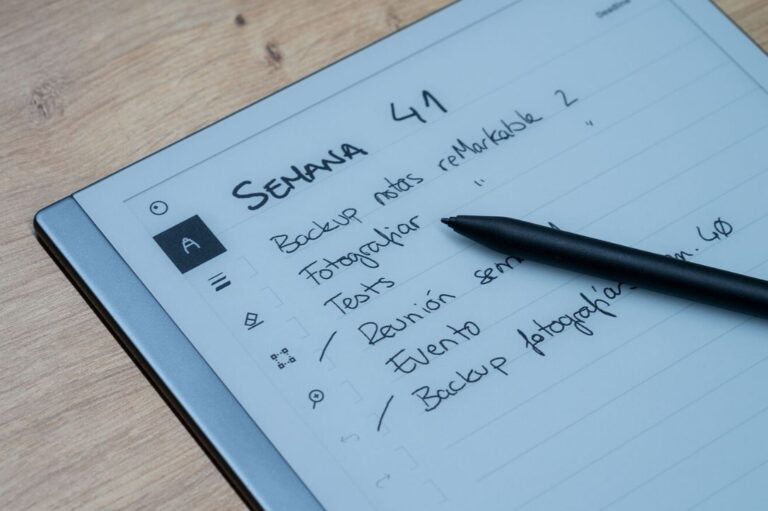 Deadline
SEMANA 41
A
Backup notas reMarkable 2
Fotografiar " "
Tests
Reunión
Evento
Backup 40